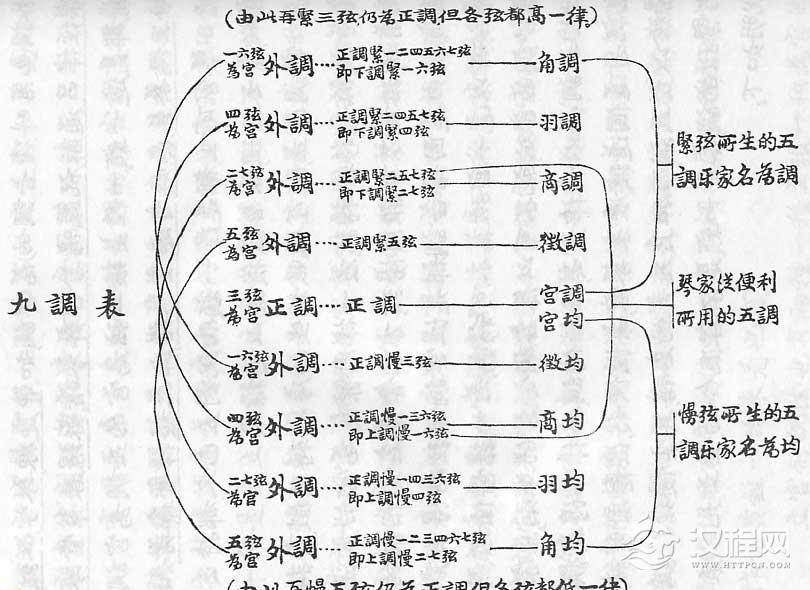 (由此再緊三弦仍為正調但各弦都高一律。)
一六弦為宮 外調 正調緊一二四五六七弦 角調
即下調緊一六弦
四弦為宮 外調 正調緊二四五七弦 羽調
即下調緊四弦
二七弦為宮 外調 正調緊二五七弦 商調
即下調緊二七弦
五弦為宮 外調 正調緊五弦 徵調
九調表
三弦為宮 正調 正調 宮調
宮均
一六弦為宮 外調 正調慢三弦 徵均
四弦為宮 外調 正調慢一三六弦 商均
即上調慢一六弦
二七弦為宮 外調 正調慢一四三六弦 羽均
即上調慢四弦
五弦為宮 外調 正調慢一二三四六七弦 角均
即上調慢二七弦
緊弦所生的五
調乐家名為調
琴家從便利
所用的五調
慢弦所生的五
調乐家名為均
(由此再慢五弦仍為正調但各弦都低一律)
汉程网
WWW.HTTPCN.COM